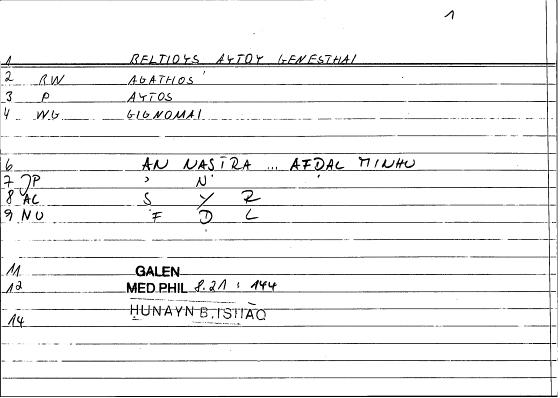 1
1 BELTIOYS AYTOY GENESTHAI
2 RW AGATHOS
3 P AYTOS
4 WG GIGNOMAI
6 AN NASIRA ... AFDAL MINHU
7 JP ' N '
8 AL S Y R
9 NU F D L
11 GALEN
12 MED.PHIL 8.21 : 144
HUNAYN B.ISHĀQ
14